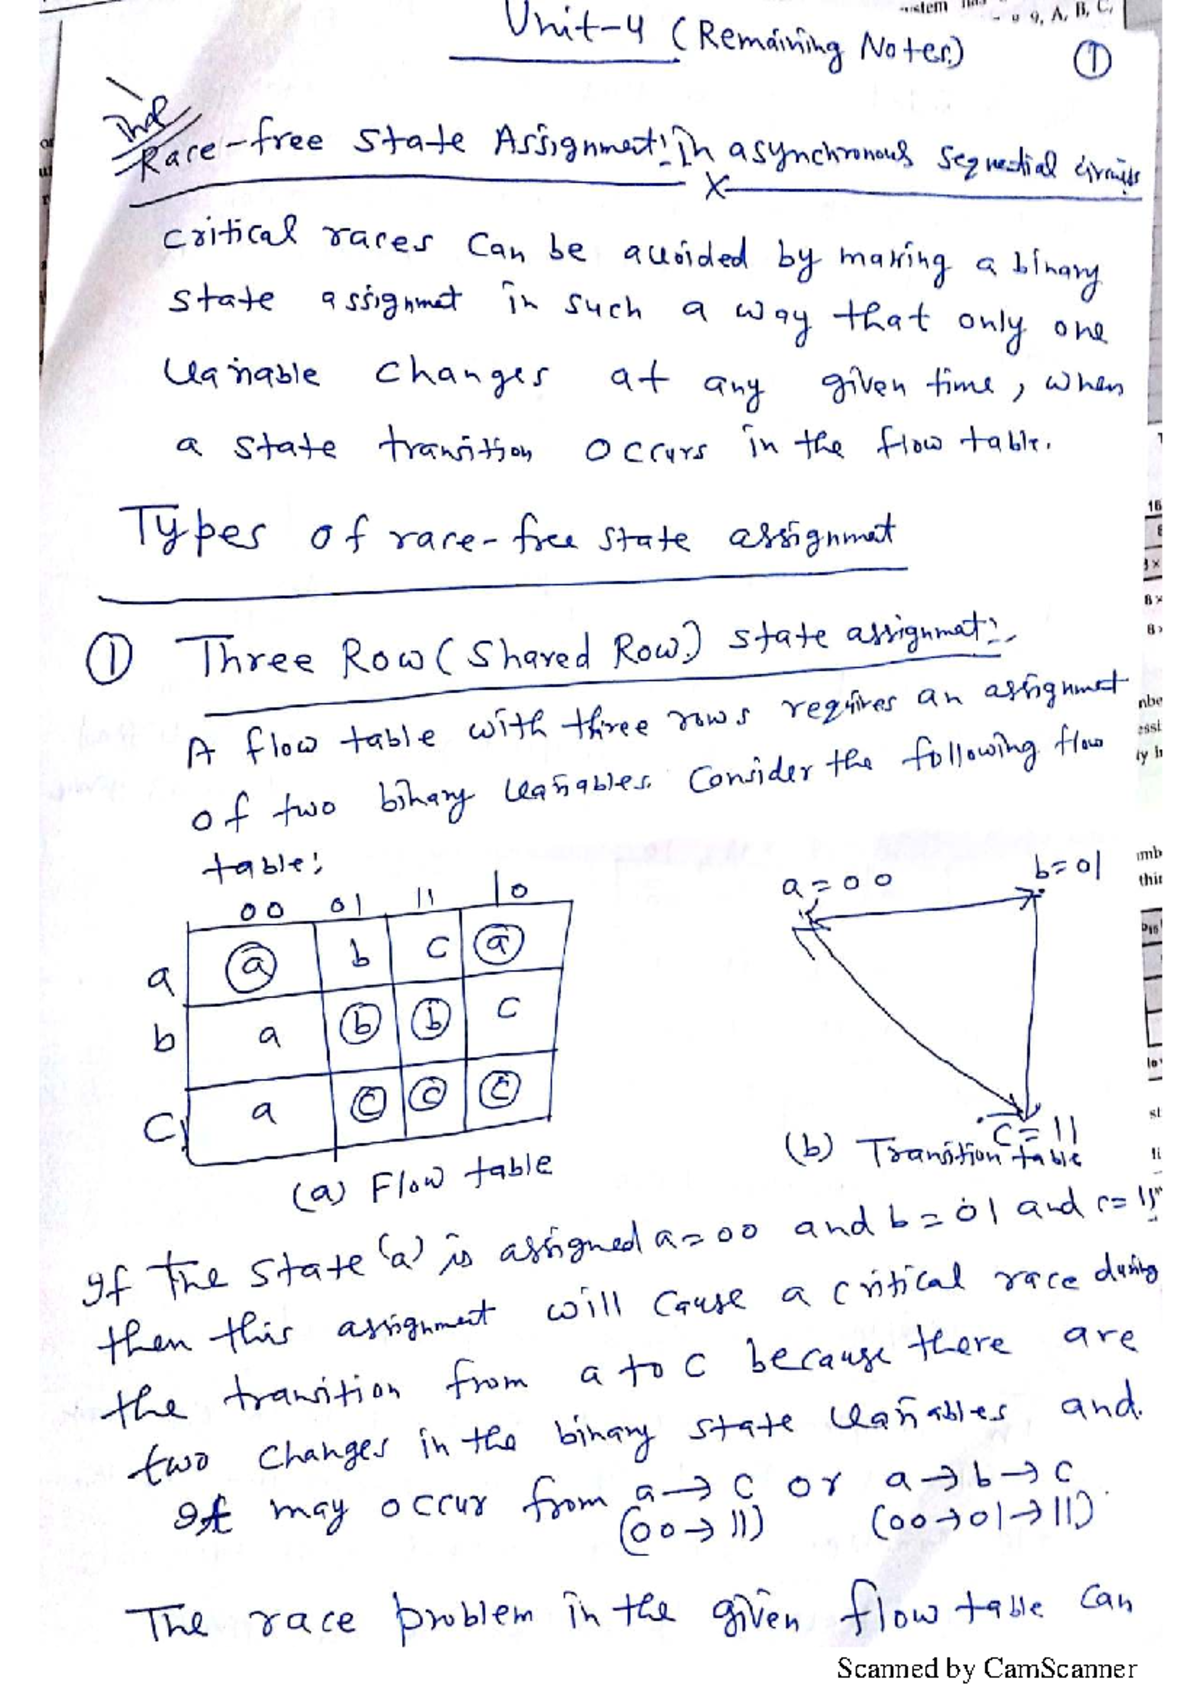 Unit-4 (Remaining Notes)
①
Race-free State Assignment: in asynchronous Sequential circuits
critical races can be avoided by making a binary
state assignmet in such a way that only one
variable changes at any given time, when
a state transition occurs in the flow table.
Types of race-free state assignmat
① Three Row (Shared Row) state assignmat:-
A flow table with three rows requires an assignment
of two binary variables. Consider the following flow
table:
00 01 11 10
a ⓐ b c ⓐ
b a ⓑ ⓑ c
c a ⓒ ⓒ ⓒ
(a) Flow table
a=00
b=01
c=11
(b) Transition table
If the state (a) is assigned a=00 and b=01 and c=11
then this assignment will cause a critical race during
the transition from a to c because there are
two changes in the binary state variables and.
It may occur from a→c or a→b→c.
(00→11) (00→01→11)
The race problem in the given flow table can
Scanned by CamScanner